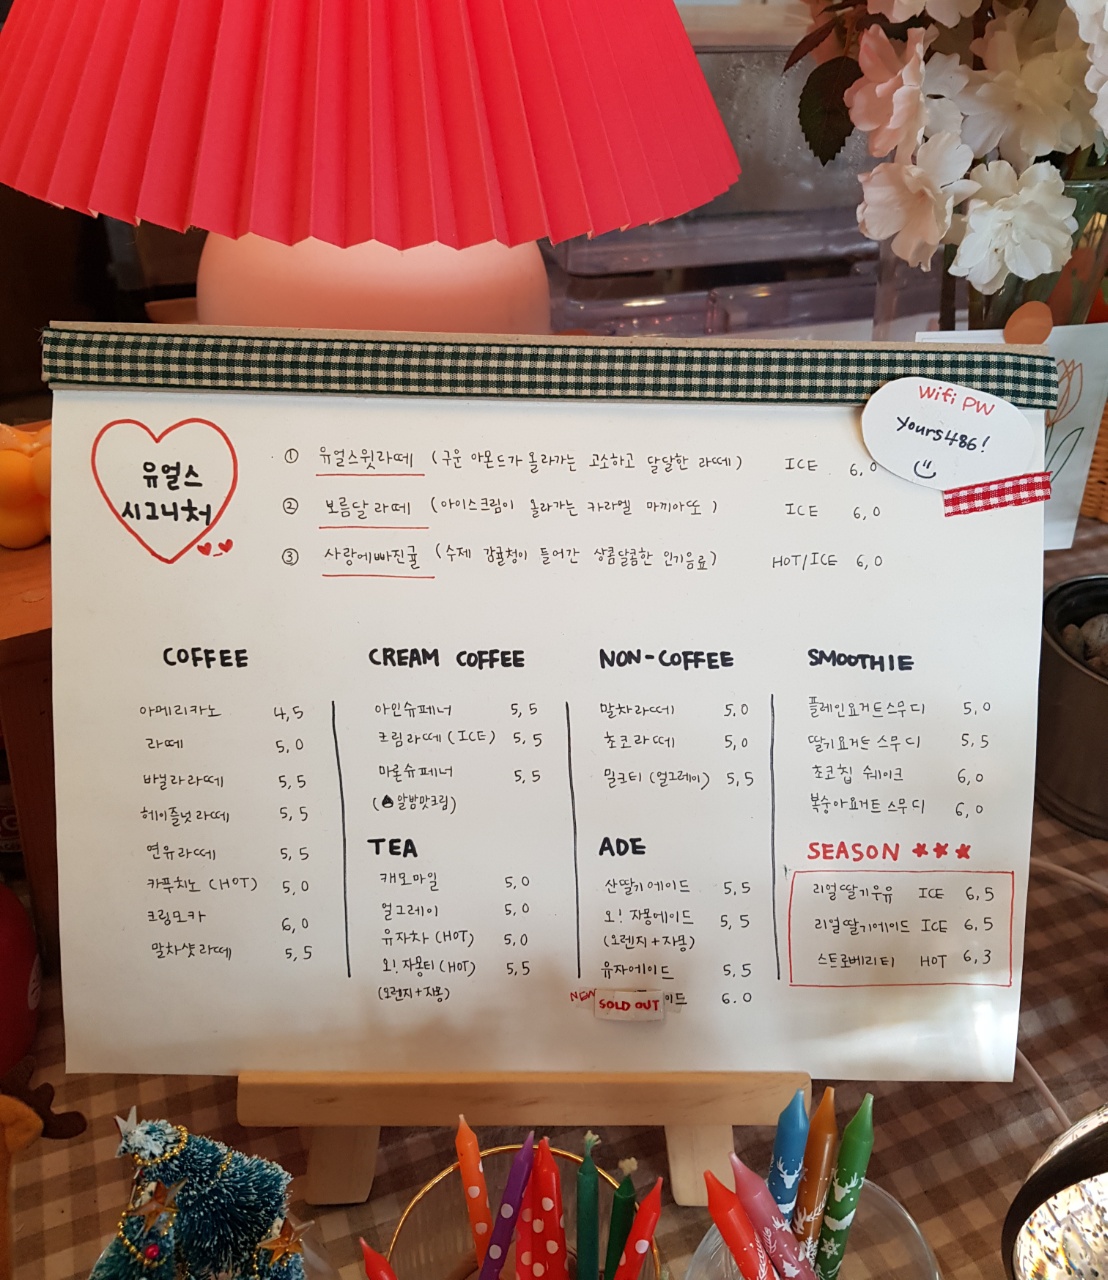 Wifi PW
yours486!
유얼스
시그니처
① 유얼스윗라떼 (구운 아몬드가 올라가는 고소하고 달달한 라떼) ICE 6,0
② 보름달라떼 (아이스크림이 올라가는 카라멜 마끼아또) ICE 6,0
③ 사랑에빠진귤 (수제 감귤청이 들어간 상콤달콤한 인기음료) HOT/ICE 6,0
COFFEE
아메리카노 4,5
라떼 5,0
바닐라라떼 5,5
헤이즐넛라떼 5,5
연유라떼 5,5
카푸치노 (HOT) 5,0
크림모카 6,0
말차샷라떼 5,5
CREAM COFFEE
아인슈페너 5,5
크림라떼 (ICE) 5,5
마론슈페너 5,5
(알밤맛크림)
TEA
캐모마일 5,0
얼그레이 5,0
유자차 (HOT) 5,0
오!자몽티 (HOT) 5,5
(오렌지+자몽)
NON-COFFEE
말차라떼 5,0
초코라떼 5,0
밀크티 (얼그레이) 5,5
ADE
산딸기에이드 5,5
오! 자몽에이드 5,5
(오렌지+자몽)
유자에이드 5,5
NEW SOLD OUT 이드 6.0
SMOOTHIE
플레인요거트스무디 5,0
딸기요거트스무디 5,5
초코칩 쉐이크 6,0
복숭아요거트스무디 6,0
SEASON
리얼딸기우유 ICE 6,5
리얼딸기에이드 ICE 6,5
스트로베리티 HOT 6,3